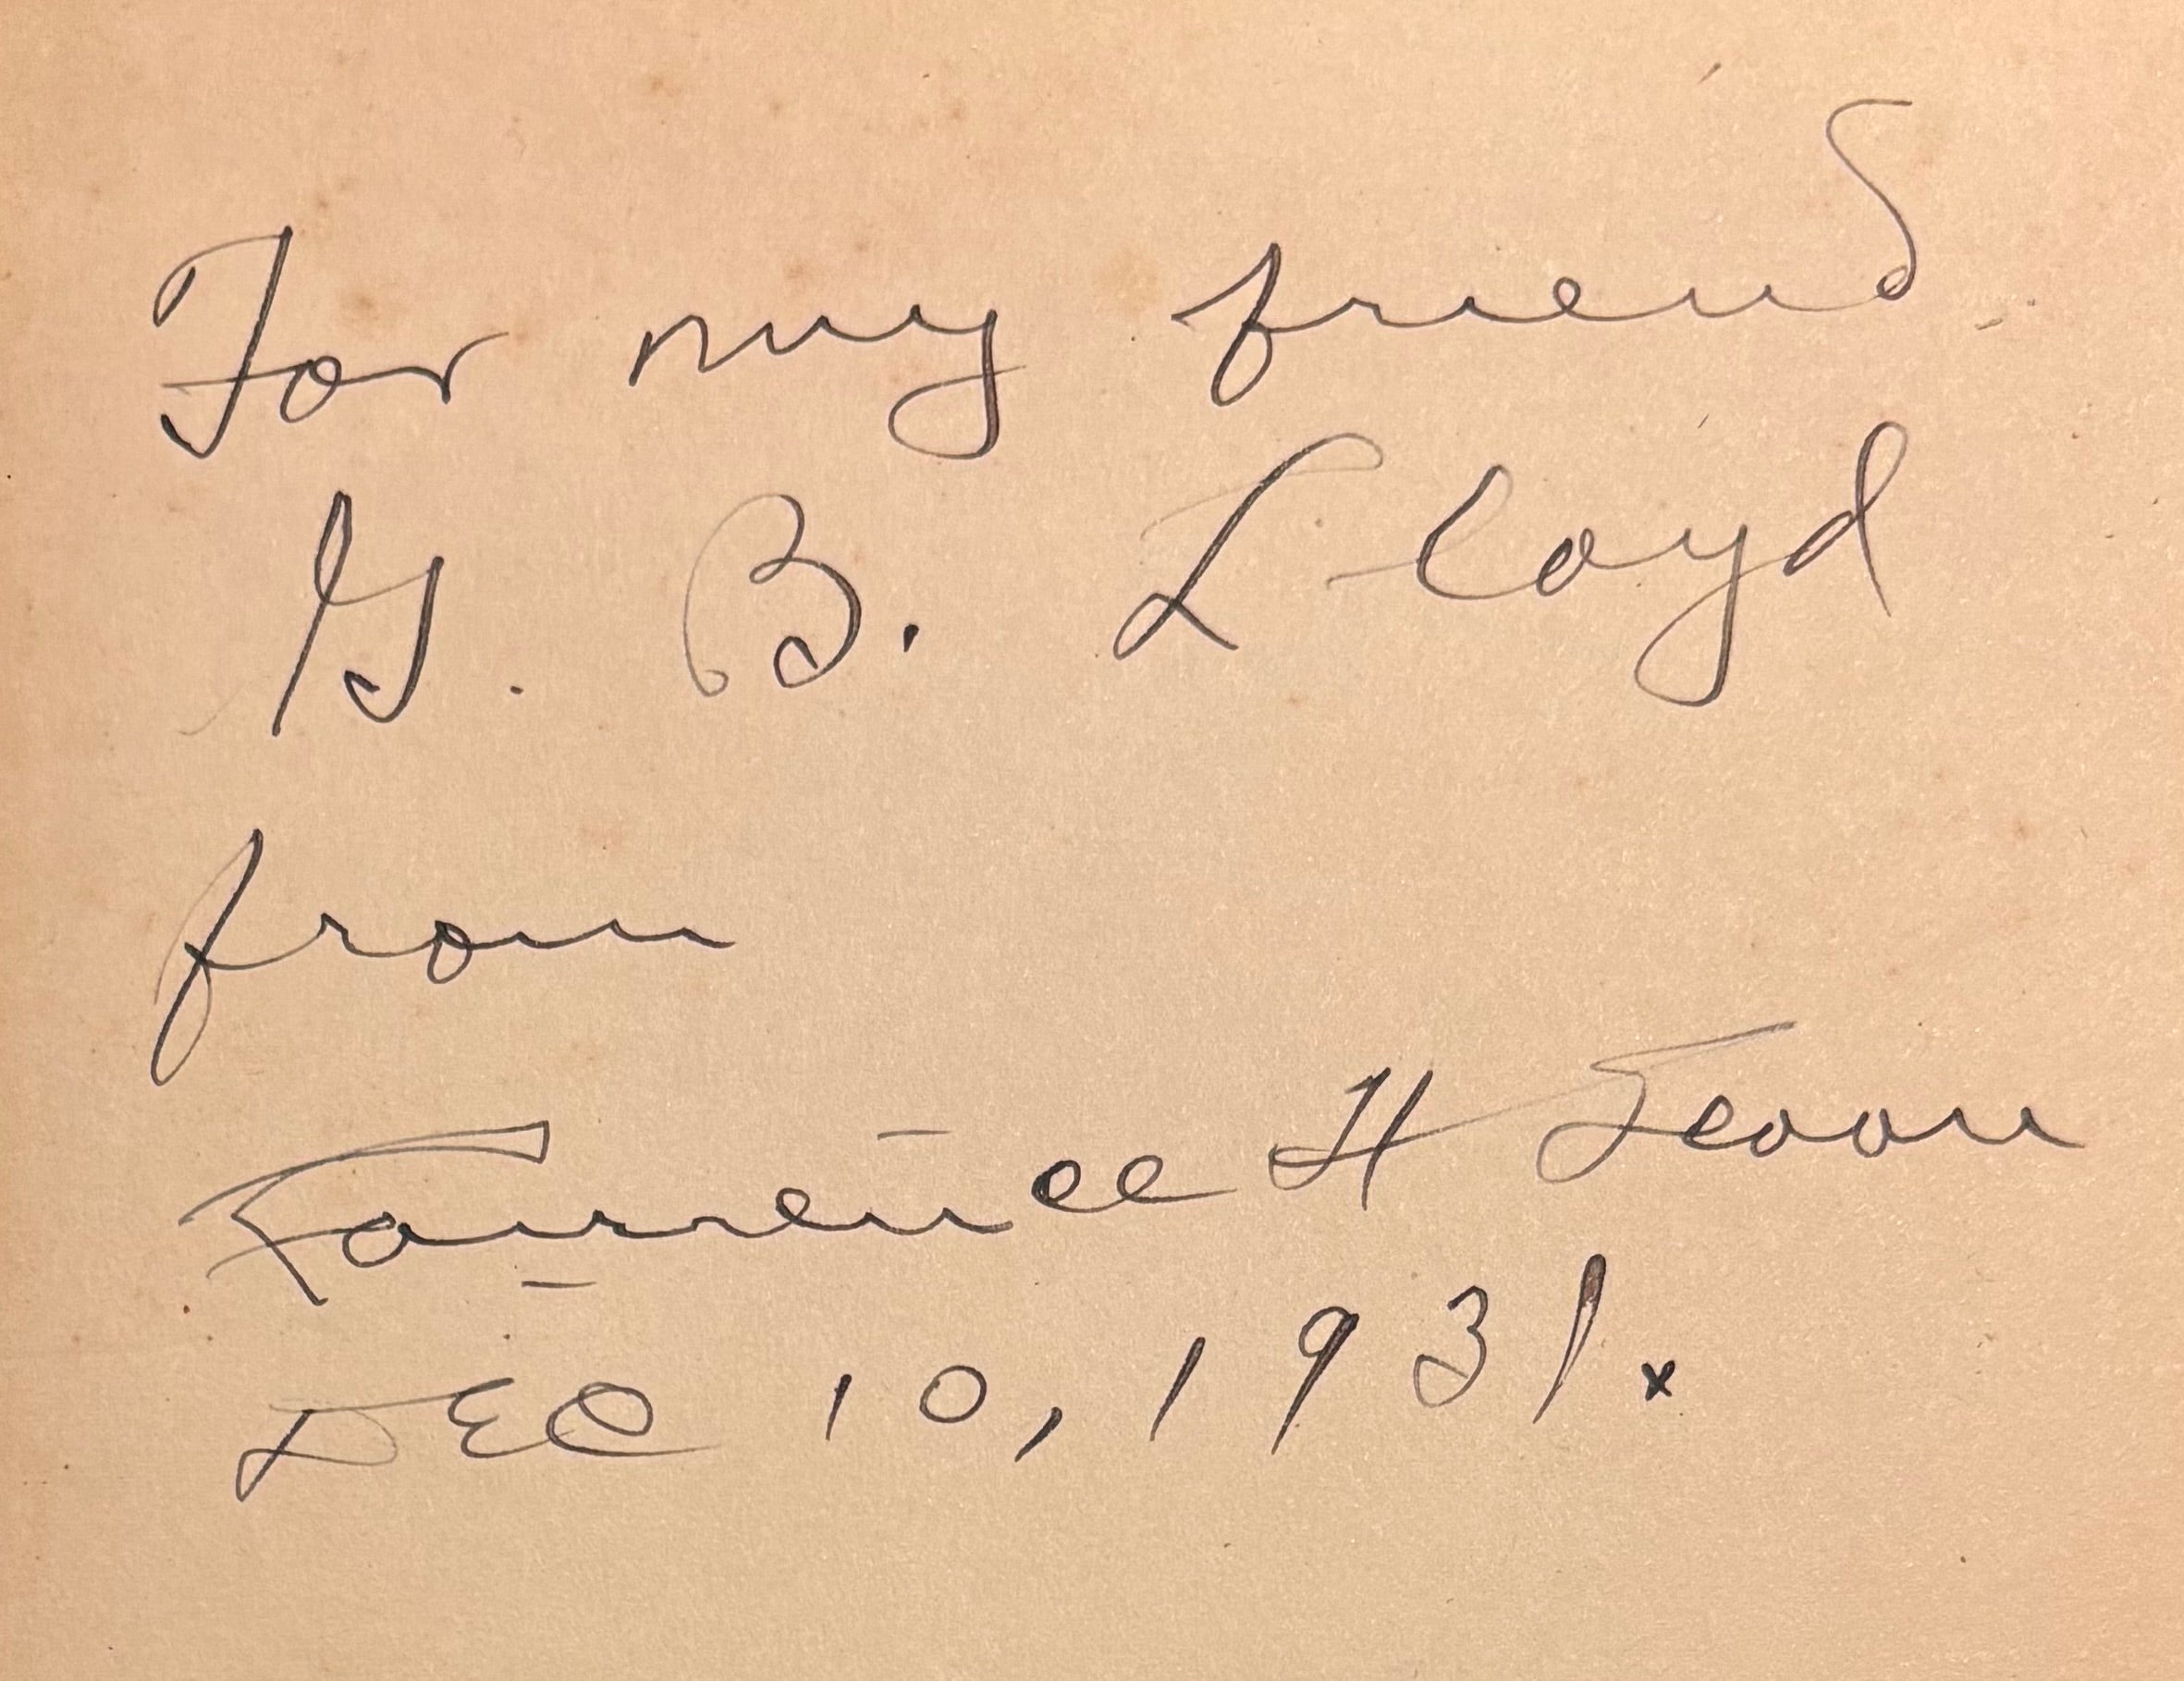 For my friend
G. B. Lloyd
from
Laurence H Sloan
DEC 10, 1931.